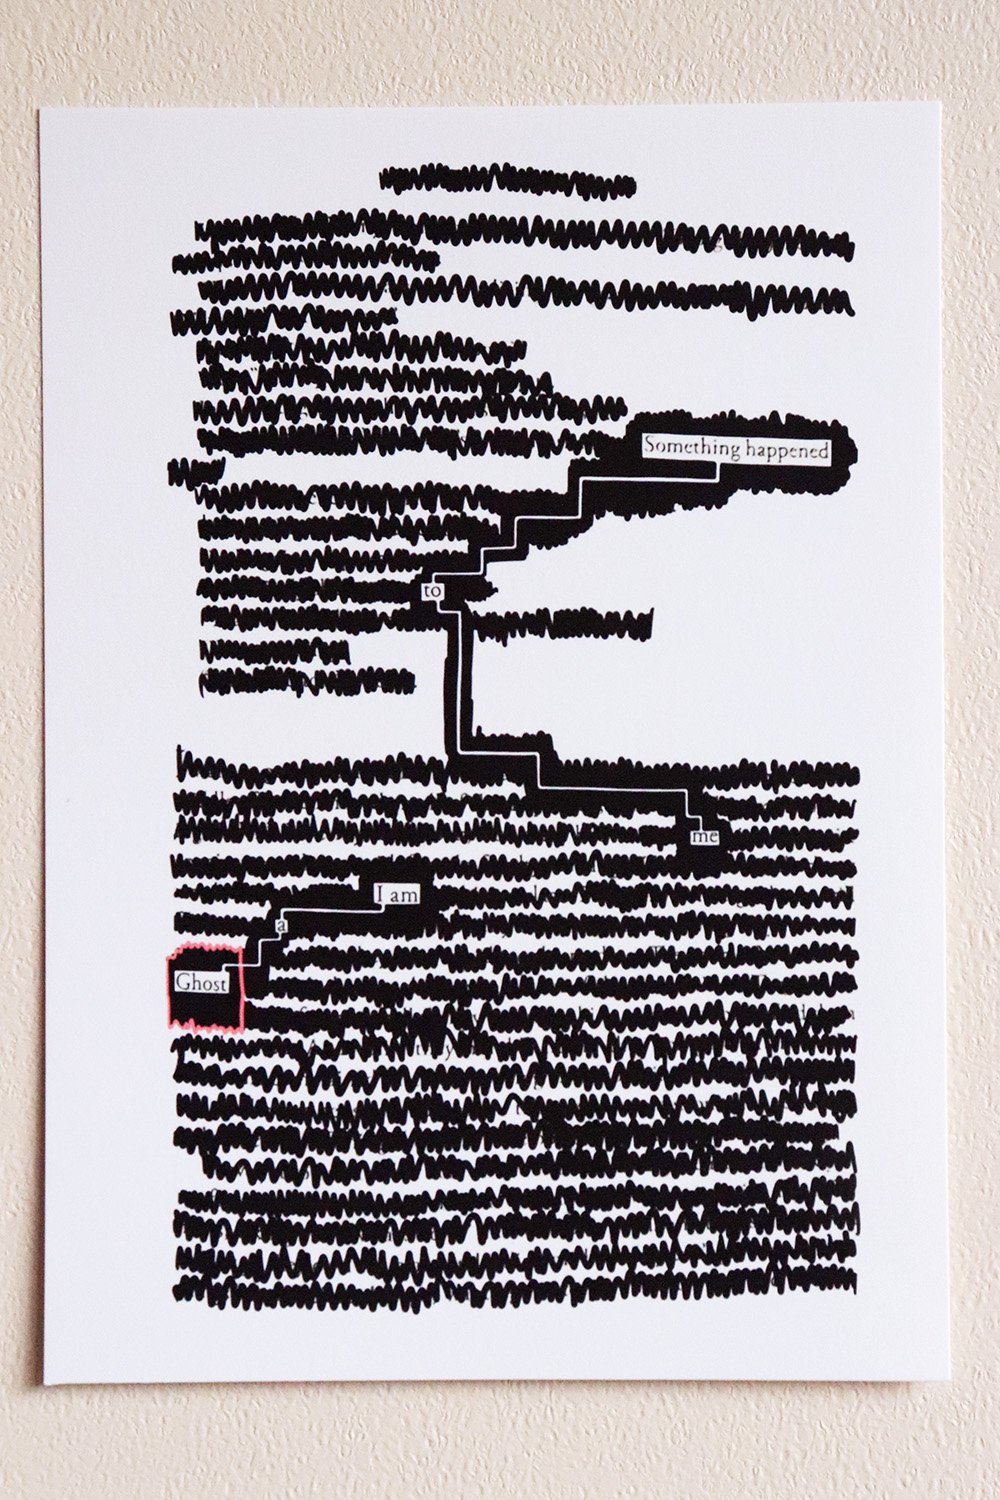 Something happened
to
me
I am
a
Ghost